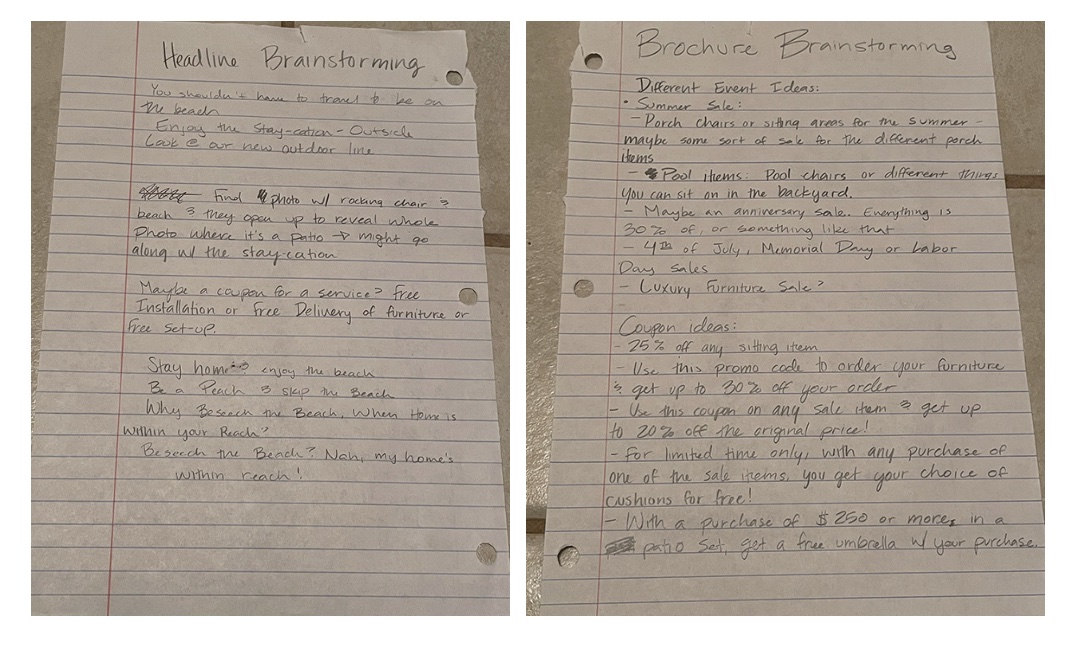 Headline Brainstorming
You shouldn't have to travel to be on
the beach
Enjoy the Stay-cation - Outside
Look @ our new outdoor line
Find photo w/ rocking chair &
beach & they open up to reveal whole
photo where it's a patio → might go
along w/ the stay-cation
Maybe a coupon for a service? Free
Installation or Free Delivery of furniture or
free set-up.
Stay home & enjoy the beach
Be a Peach & skip the Beach
Why Beseech the Beach, When Home is
within your Reach?
Beseech the Beach? Nah, my home's
within reach!
Brochure Brainstorming
Different Event Ideas:
• Summer Sale:
- Porch chairs or sitting areas for the summer -
maybe some sort of sale for the different porch
items
- Pool items: Pool chairs or different things
you can sit on in the backyard.
- Maybe an anniversary sale. Everything is
30% of, or something like that
- 4th of July, Memorial Day or Labor
Day Sales
- Luxury Furniture Sale?
Coupon ideas:
- 25% off any sitting item
- Use this promo code to order your furniture
& get up to 30% off your order
- Use this coupon on any sale item & get up
to 20% off the original price!
- For limited time only, with any purchase of
one of the sale items, you get your choice of
cushions for free!
- With a purchase of $250 or more, in a
patio set, get a free umbrella w/ your purchase.